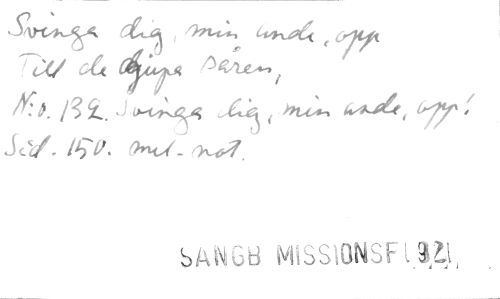 Svinga dig, min ande, opp
Till de djupa såren,
N:o. 132. Svinga dig, min ande, opp!
Sid. 150. mel. not.
SANGB MISSIONSF 1921